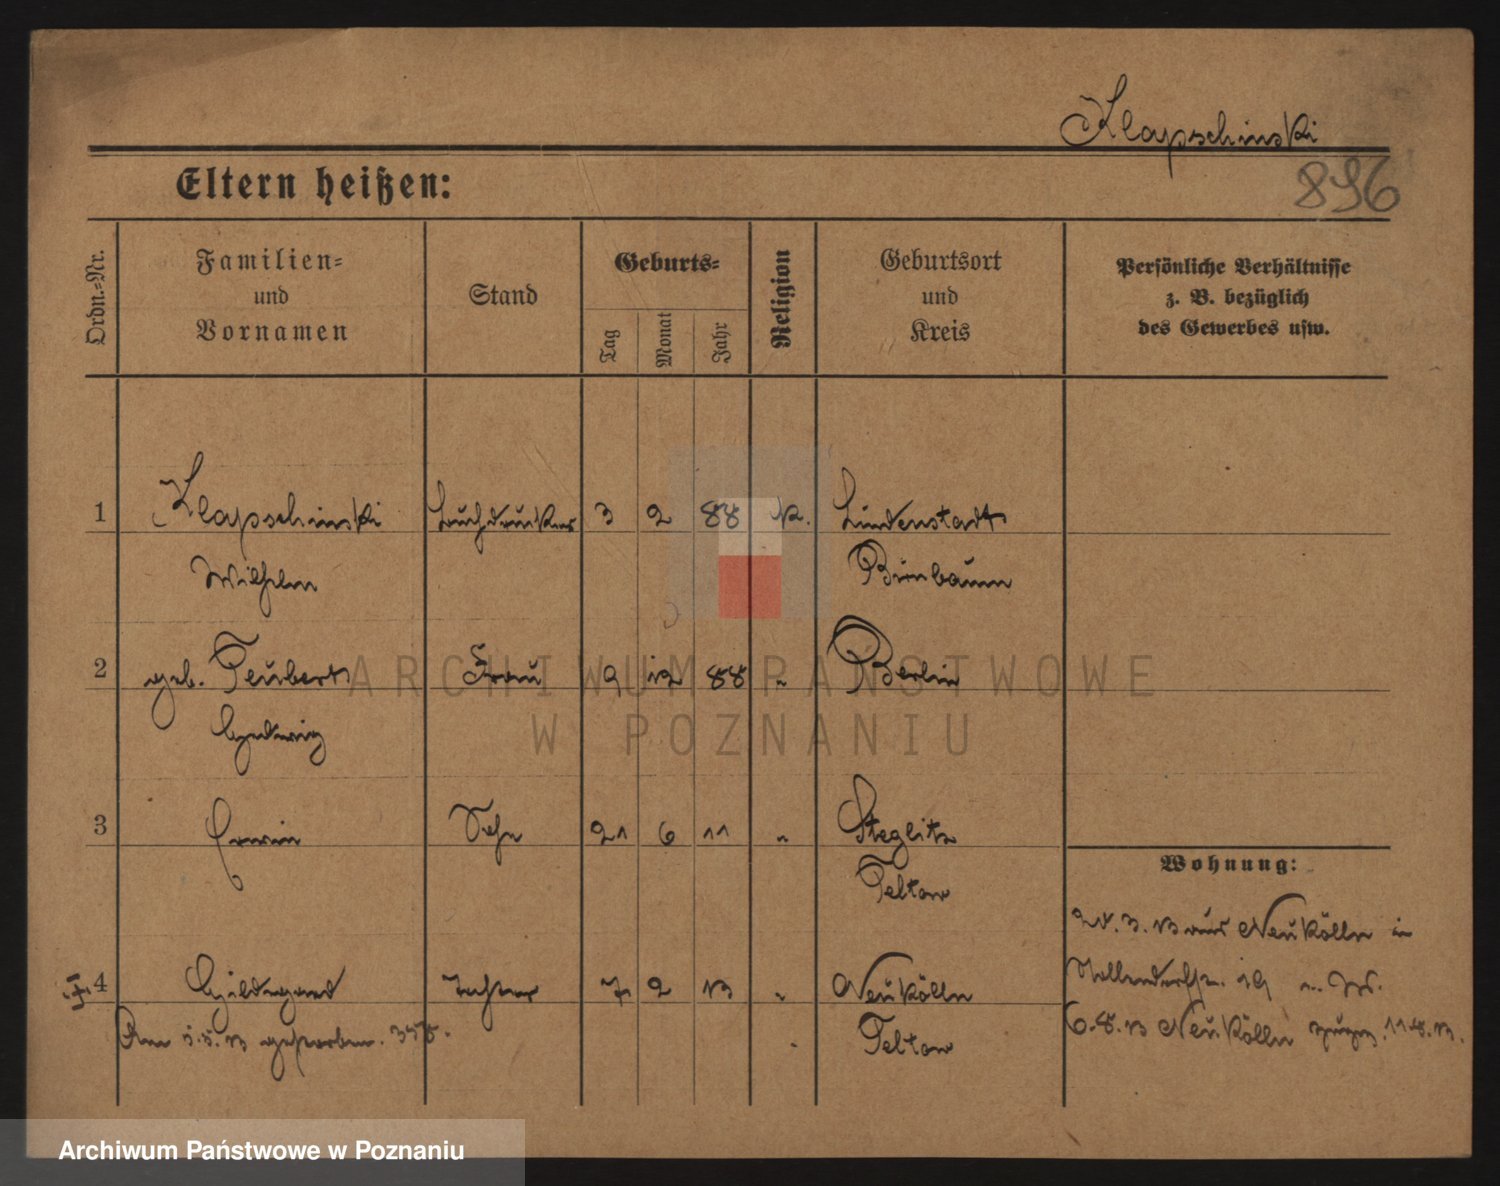 Klapschinski
896
Eltern heißen:
Ordn.-Nr.
Familien-
und
Vornamen
Stand
Geburts-
Tag
Monat
Jahr
Religion
Geburtsort
und
Kreis
Persönliche Verhältnisse
z. B. bezüglich
des Gewerbes usw.
1 Klapschinski Buchdrucker 3 2 88 k. Lindenstadt
Wilhelm Birnbaum
2 geb. Teubert Frau 9 12 88 " Berlin
Hedwig
3 Erwin Sohn 21 6 11 " Steglitz
Teltow
Wohnung:
3. 13 aus Neukölln in
4 Hildegard Tochter 7 2 13 " Neukölln
Teltow
Am 5.5.13 gestorben.
6.8.13 Neukölln 11.8.13.
ARCHIWUM PAŃSTWOWE
W POZNANIU
Archiwum Państwowe w Poznaniu